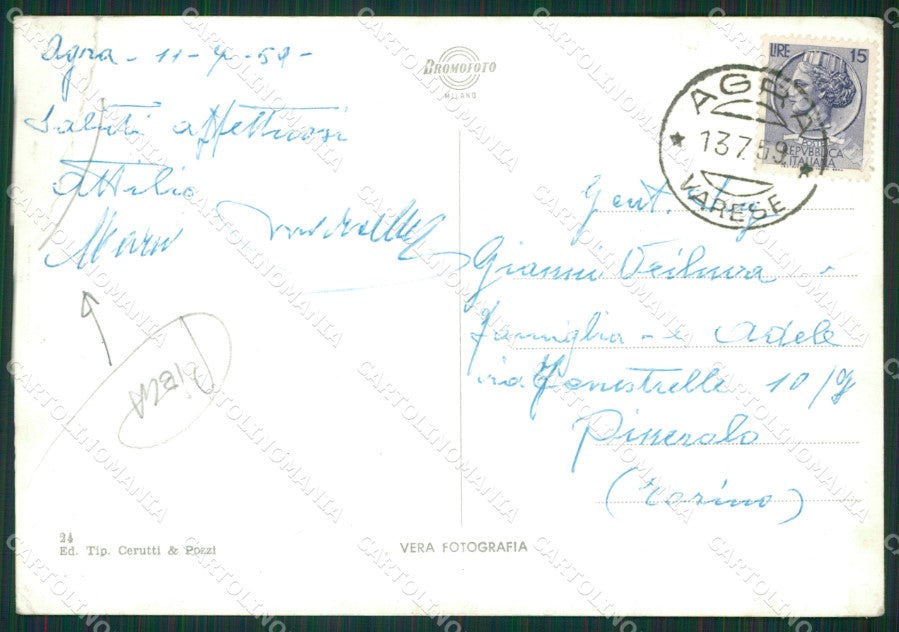 Agra - 11-7-59-
Saluti affettuosi
Attilio
Maria
PIEGA
BROMOFOTO
MILANO
LIRE 15
REPVBBLICA
ITALIANA
AGRA
13.7.59
VARESE
Gent.
Gianni
Famiglia - e Adele
via Fenestrelle 10/g
Pinerolo
(Torino)
24
Ed. Tip. Cerutti & Pozzi
VERA FOTOGRAFIA
CARTOLINOMANIA